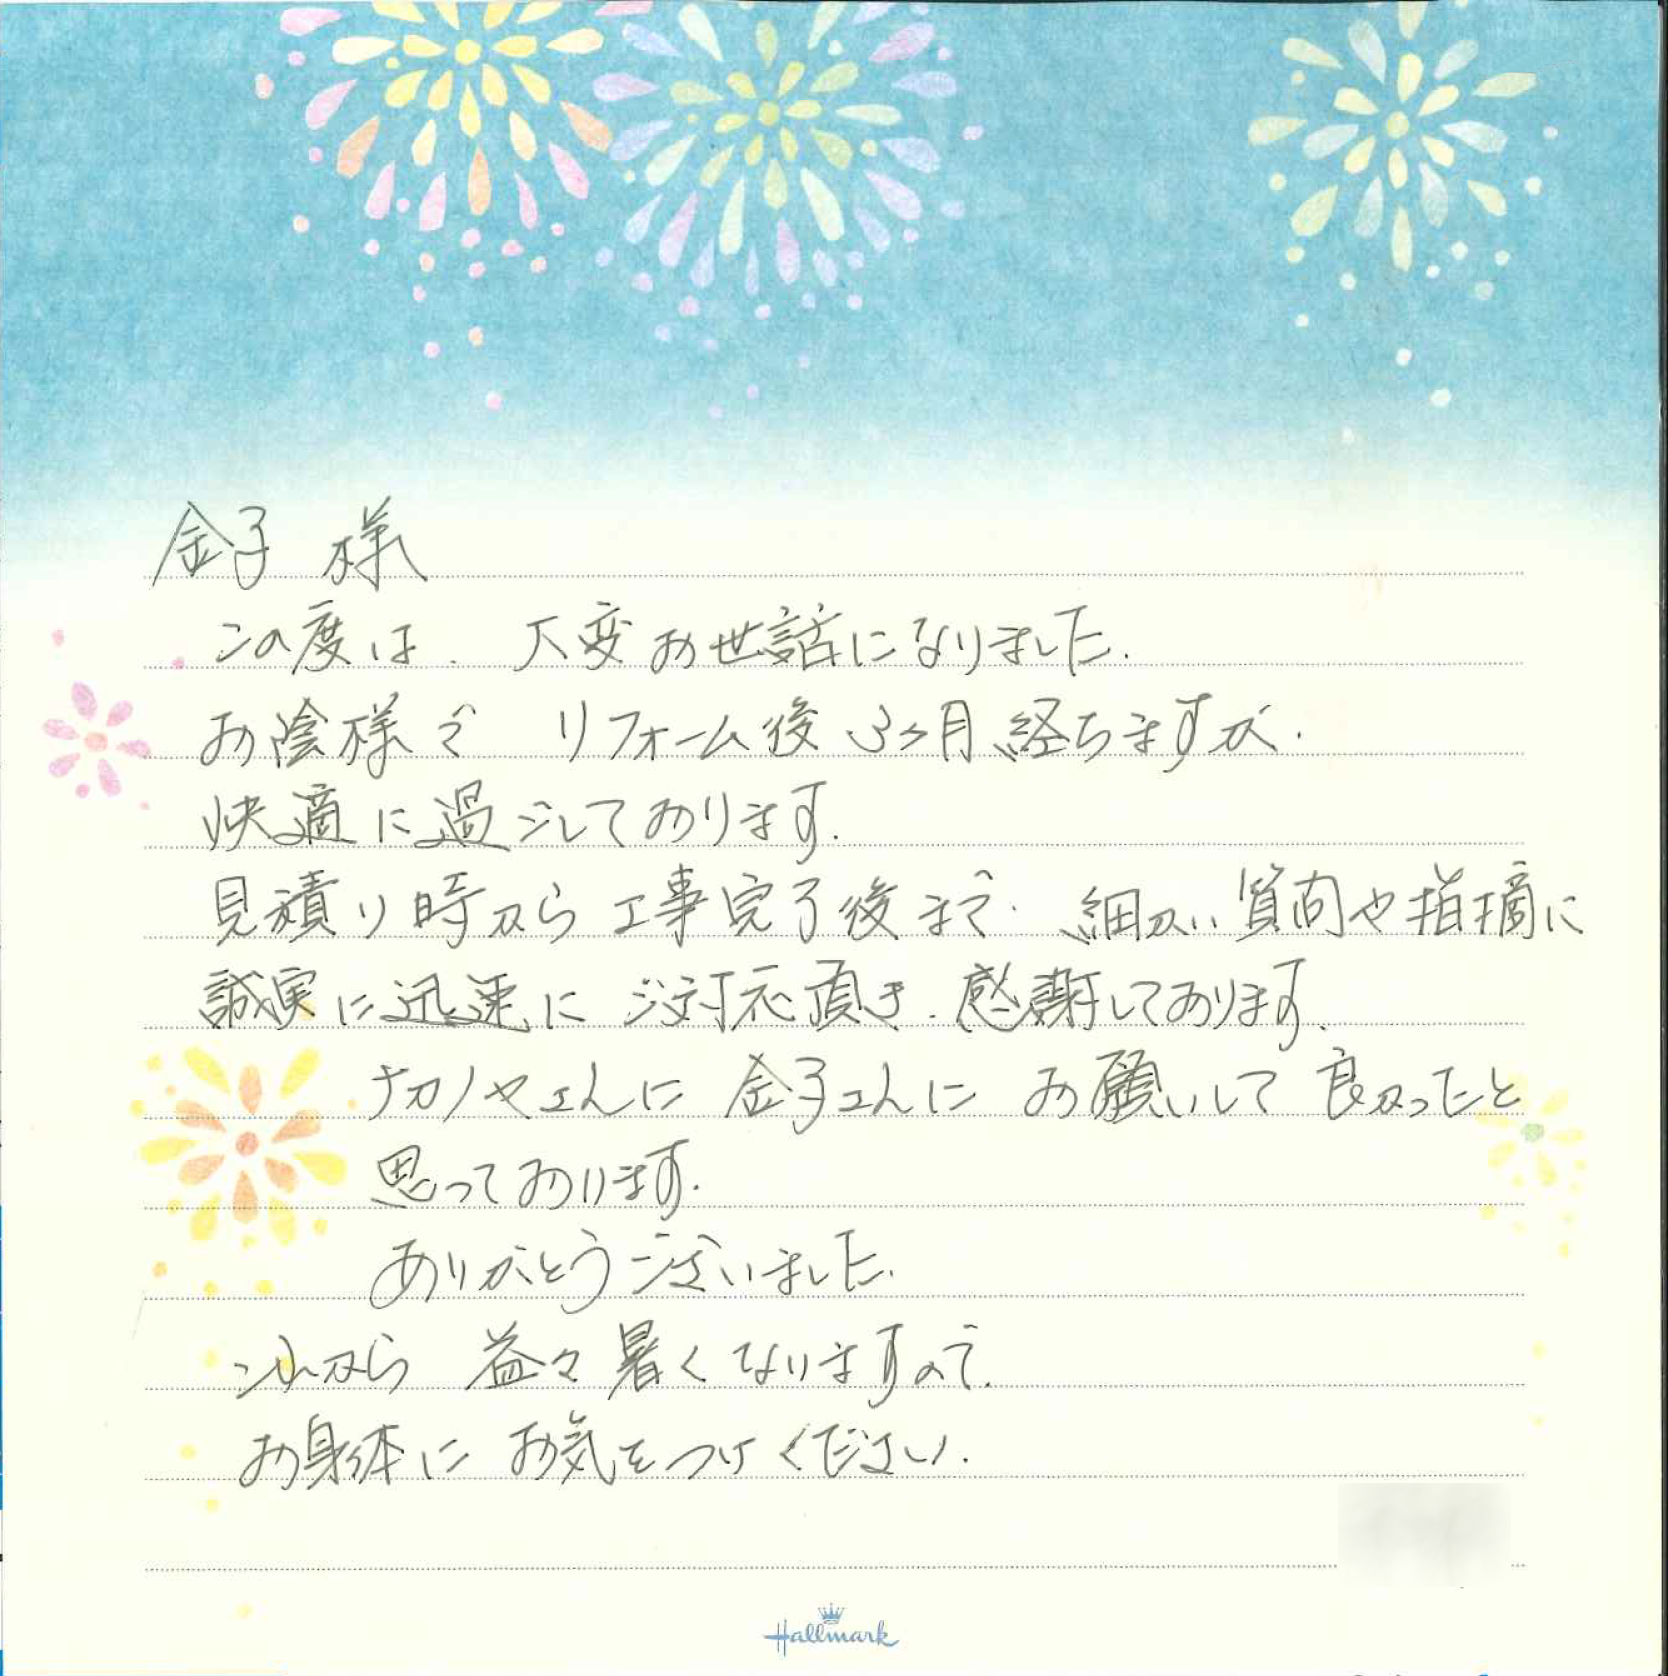 金子 様
この度は、大変お世話になりました。
お陰様で リフォーム後 3ヶ月 経ちますが、
快適に過ごしております。
見積り時から 工事完了後まで、細かい質問や指摘に
誠実に迅速に ご対応頂き、感謝しております。
ナカノヤさんに 金子さんに お願いして 良かったと
思っております。
ありがとうございました。
これから 益々暑くなりますので、
お身体に お気をつけください。
Hallmark